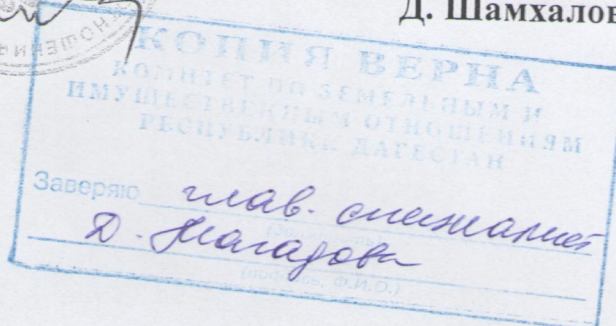 Д. Шамхалов
КОПИЯ ВЕРНА
КОМИТЕТ ПО ЗЕМЕЛЬНЫМ И
ИМУЩЕСТВЕННЫМ ОТНОШЕНИЯМ
РЕСПУБЛИКИ ДАГЕСТАН
Заверяю глав. специалист
(должность)
Д.
(подпись, Ф.И.О.)